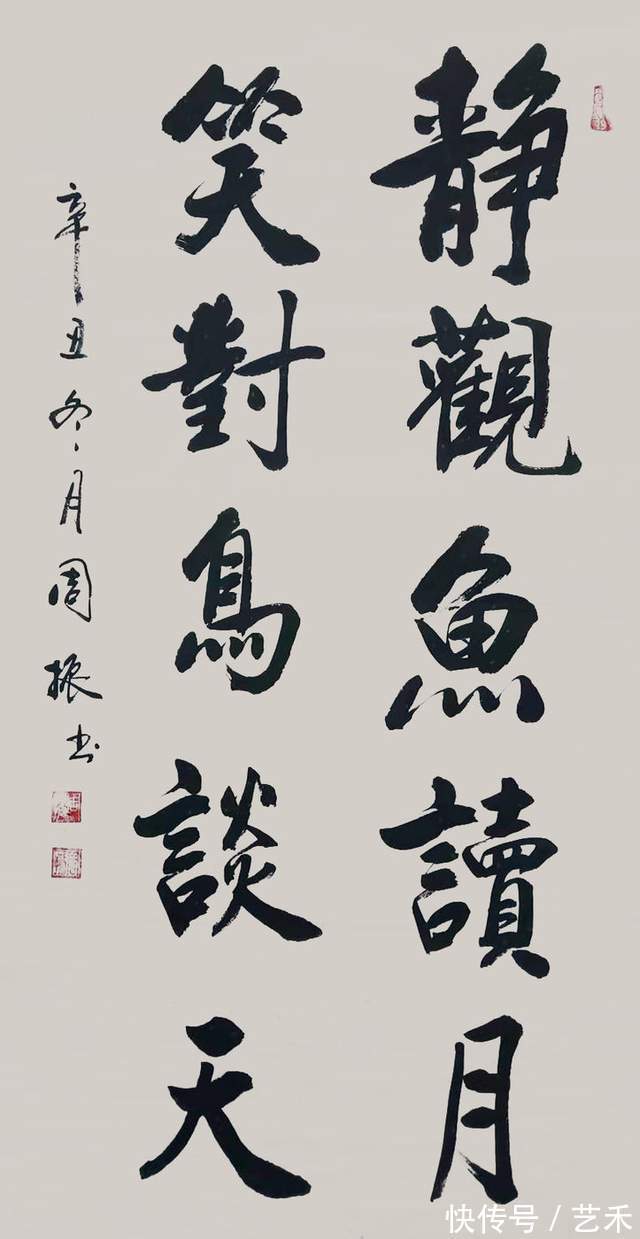 靜觀魚讀月
笑對鳥談天
辛丑冬月周振书
快传号/艺禾